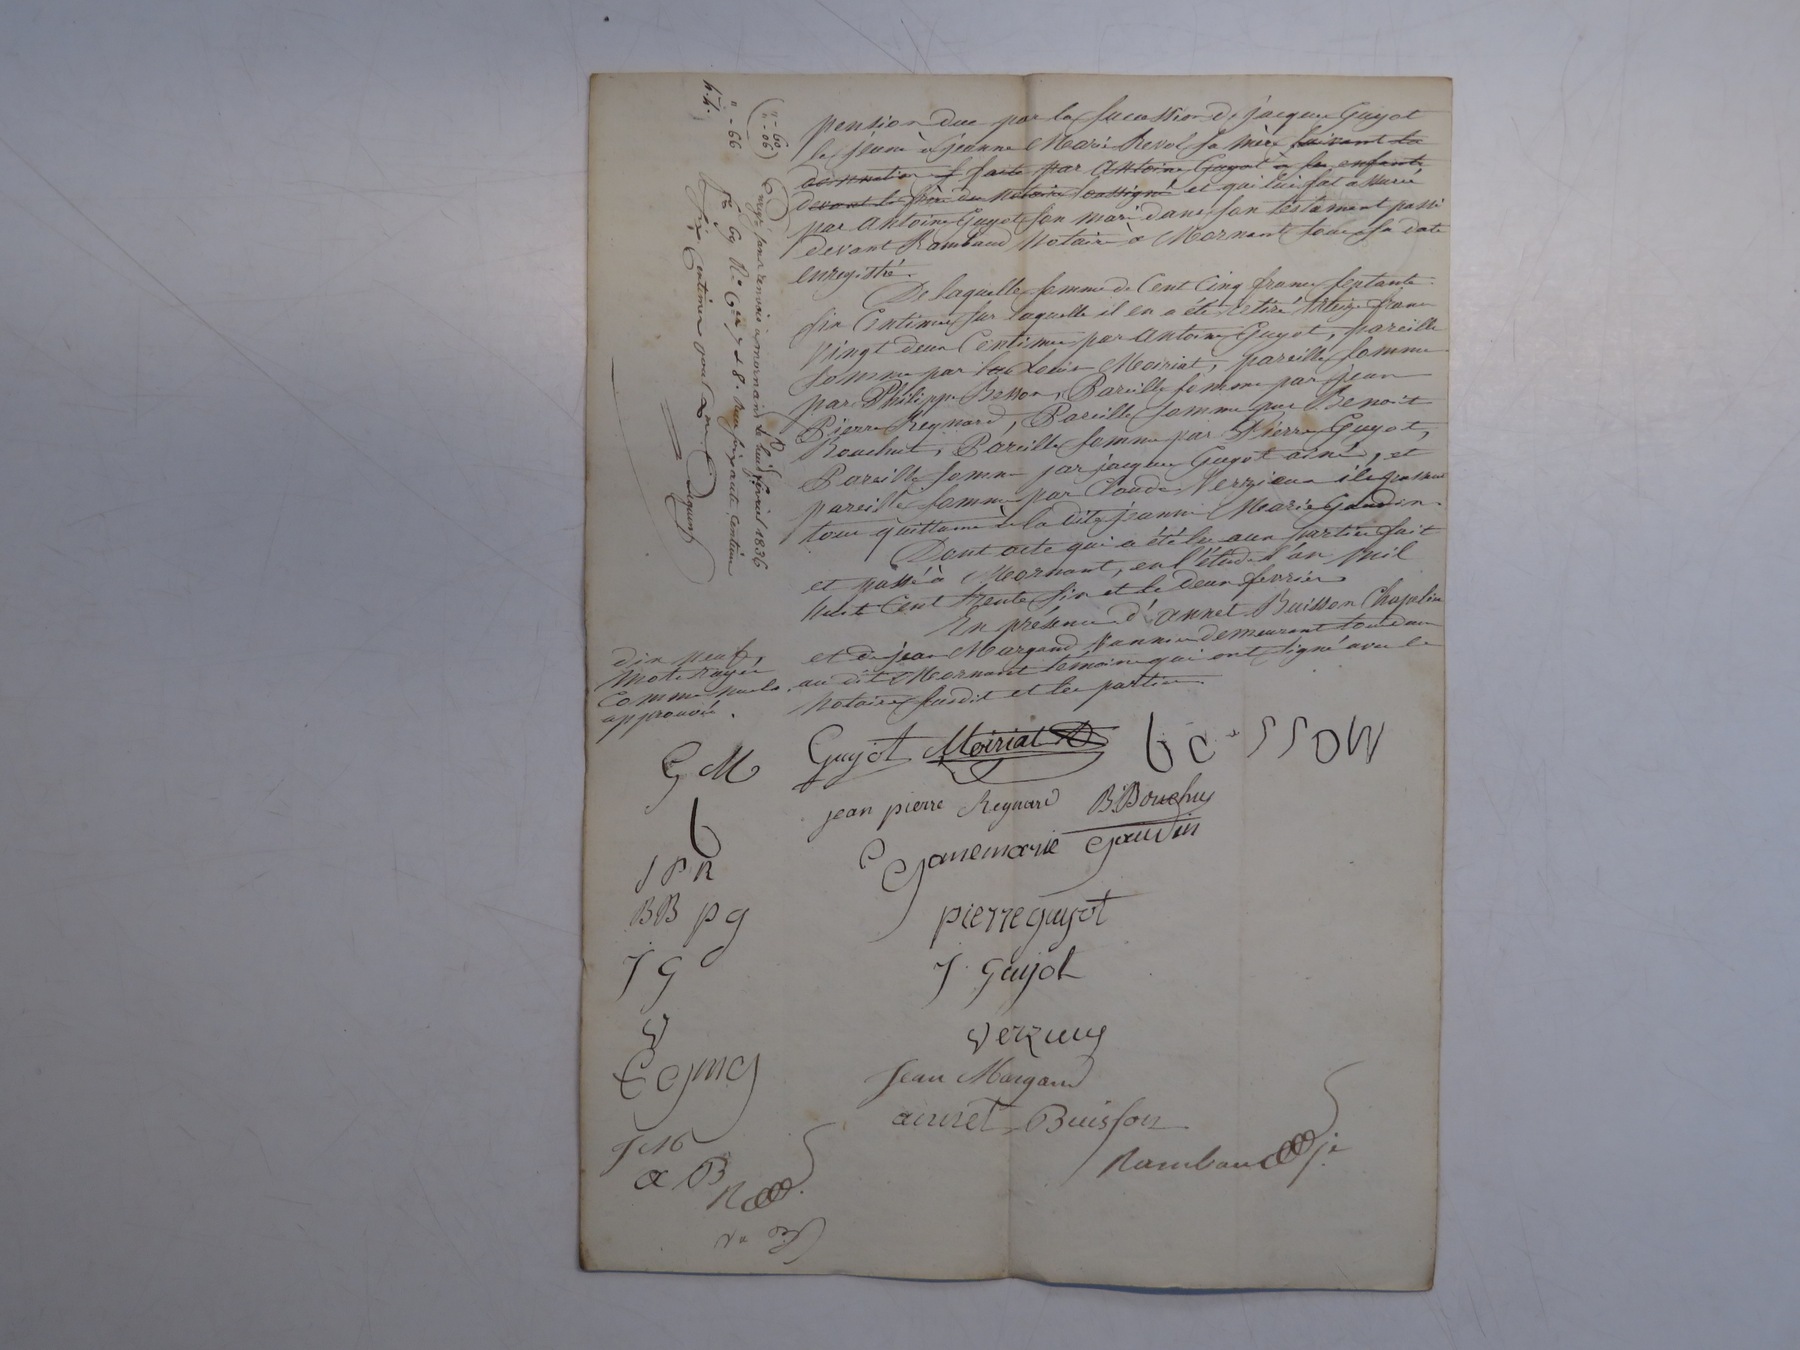 pension due par la succession de jacques Guyot
le jeune à jeanne Marie Revol sa mère suivant la
donnation faite par Antoine Guyot à ses enfants
devant le père du Notaire soussigné et qui lui fut assurée
par Antoine Guyot son mari dans son testament passé
devant Rambaud Notaire à Mornant sous sa date
enregistré.
De laquelle somme de Cent Cinq francs septante
six Centimes sur laquelle il en a été retiré treize francs
vingt deux Centimes par Antoine Guyot, pareille
somme par Louis Moiriat, pareille somme
par Philippe Besson, Pareille somme par jean
Pierre Reynard, Pareille somme par Benoit
Bouchut, Pareille somme par Pierre Guyot,
Pareille somme par jacques Guyot ainé, et
pareille somme par Claude Verzieux ils passent
tous quittance à la dite jeanne Marie Gaudin.
Dont acte qui a été lu aux parties fait
et passé à Mornant, en l'étude l'an Mil
huit Cent trente six et le deux fevrier
En présence d'annet Buisson Chapelier
et de jean Margand Vannier demeurant tous deux
au dit Mornant témoins qui ont signé avec le
Notaire susdit et les parties.
dix neuf,
mots rayés
comme nuls
approuvés.
Enregé deux renvois à mornant le huit fevrier 1836
fo 69 Ro Ces 7 & 8. Reçu soixante centimes
six centimes pour
G M
Guyot Moiriat be-sson
b
jean pierre Reynard B Bouchu
J P R
janemarie gaudin
BB p g
pierre guyot
J G
J. Guyot
V
verzieu
C gmg
Jean Margand
J M G
annet Buisson
a B
R
Rambaud je